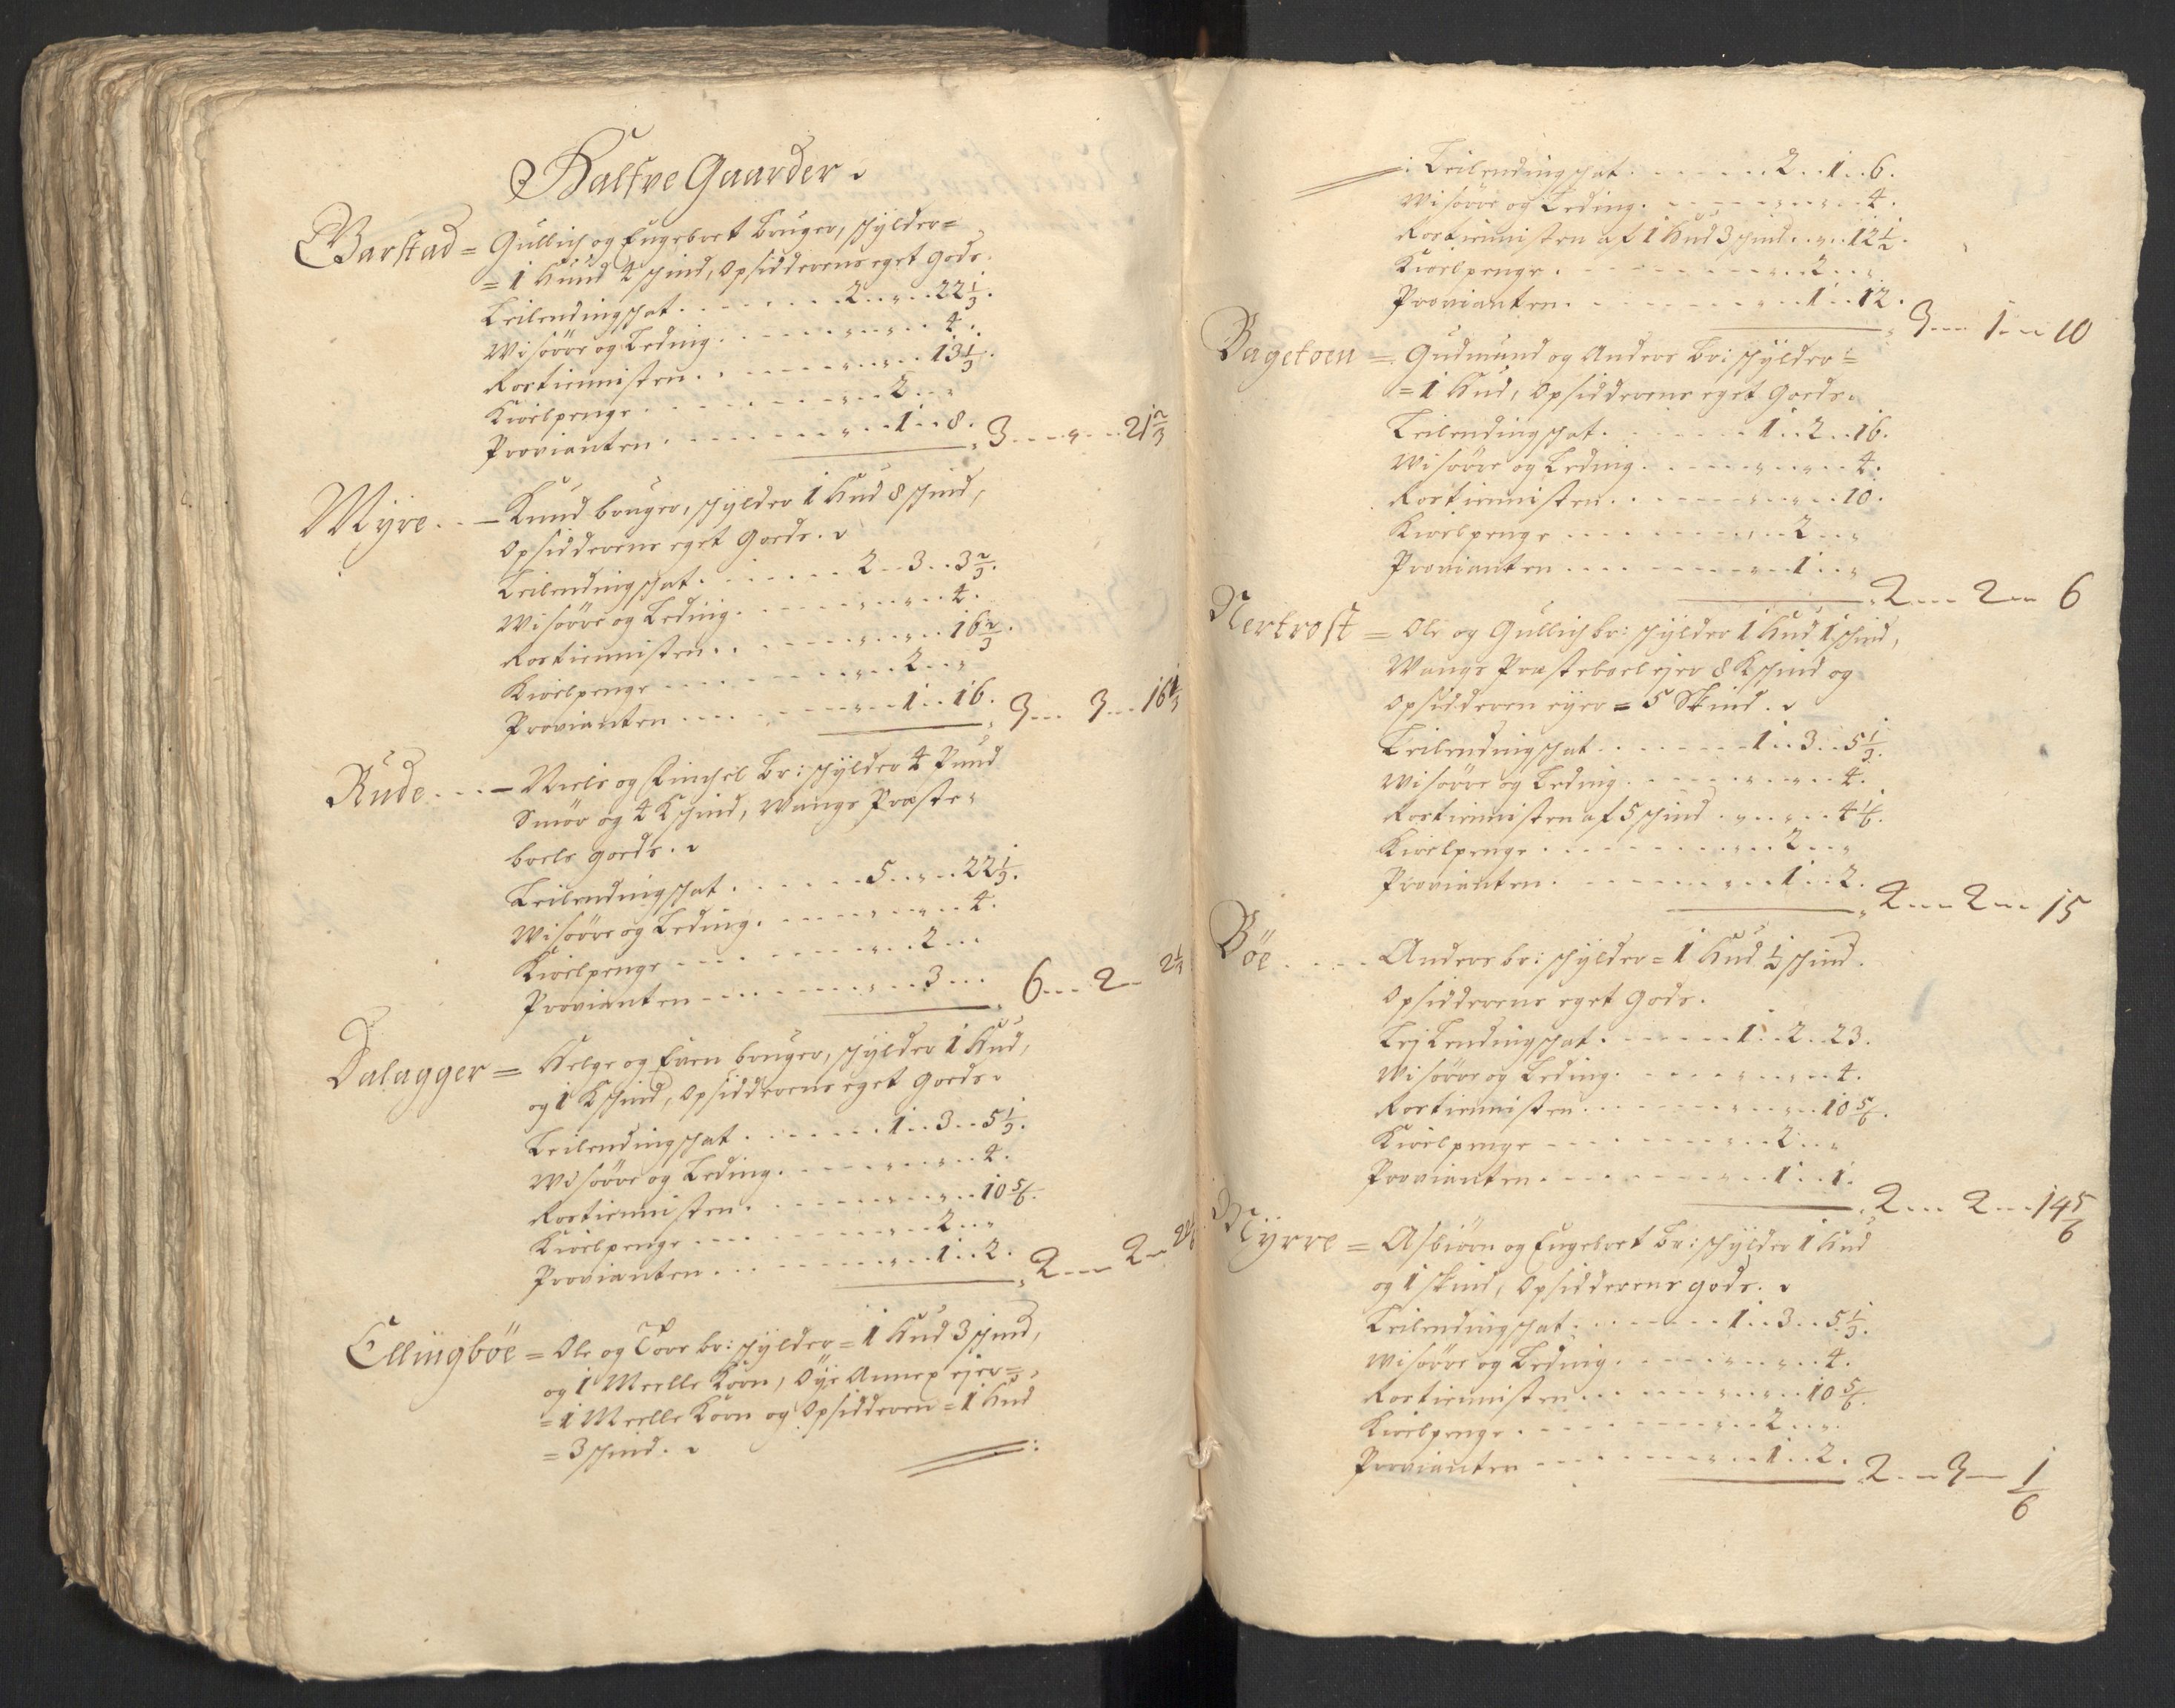 Halfve Gaarder
Barstad = Gullich og Engebret bruger, schylder=
= 1 Hund 4 schind, Opsidderens eget gods.
Leilendingschat . . . . . . 2 . . „ . . 22 1/3 .
Wisøøre og Leding . . . . . „ . . „ . . 4 .
Rostiennisten . . . . . „ . . „ . . 13 1/3 .
Kioelpenge . . . . . . „ . . 2 . . „
Provianten . . . . . . „ . . 1 . . 8 . 3 . . . „ . . . 21 2/3
Myre . . - Knud bruger, schylder 1 Hud 8 schind,
Opsidderens eget Goeds .
Leilendingschat . . . . . . 2 . . 3 . . 3 2/3 .
Wisøøre og Leding . . . . . „ . . „ . . 4 .
Rostiennisten . . . . . „ . . „ . . 16 2/3 .
Kioelpenge . . . . . . „ . . 2 . . „
Provianten . . . . . . „ . . 1 . . 16 . 3 . . . 3 . . . 16 1/3
Rude . . . - Niels og Finchel br: schylder 4 Pund
Smør og 4 Kschind, Wangs Præste-
boels goeds .
Leilendingschat . . . . . . 5 . . „ . . 22 1/3 .
Wisøøre og Leding . . . . . „ . . „ . . 4 .
Kioelpenge . . . . . . „ . . 2 . . .
Provianten . . . . . . „ . . 3 . . . 6 . . . 2 . . 2 1/3
Dalagger = Helge og Even bruger, schylder 1 Hud,
og 1 Kschind, Opsidderens eget goeds .
Leilendingschat . . . . . . 1 . . 3 . . 5 1/3 .
Wisøøre og Leding . . . . . „ . . „ . . 4 .
Rostiennisten . . . . . „ . . „ . . 10 5/6 .
Kioelpenge . . . . . . „ . . 2 . . „
Provianten . . . . . . „ . . 1 . . 2 . 2 . . . 2 . .
Ellingbøe = Ole og Tore br: schylder = 1 Hud 3 schind,
og 1 Meelle Korn, Øÿe Annex ejer =
= 1 Meelle Korn og Opsidderen = 1 Hud
= 3 schind .
: Leilendingschat . . . . . . 2 . . 1 . . 6 .
Wisøøre og Leding . . . . . „ . . „ . . 4 .
Rostiennisten af 1 Hud 3 schind . . „ . . 12 1/2 .
Kioelpenge . . . . . . „ . . 2 . . „
Provianten . . . . . . „ . . 1 . . 12 . 3 . . . 1 . . 10
Bagetoen = Gudmund og Anders br: schylder =
= 1 Hud, Opsidderens eget Goeds .
Leilendingschat . . . . . . 1 . . 2 . . 16 .
Wisøøre og Leding . . . . . „ . . „ . . 4 .
Rostiennisten . . . . . „ . . „ . . 10 .
Kioelpenge . . . . . . „ . . 2 . . „
Provianten . . . . . . „ . . 1 . . „ 2 . . . 2 . . 6
Nertrost = Ole og Gullich br: schylder 1 Hud 1 schind,
Wangs Præsteboel ejer 8 Kschind og
Opsidderen eyer = 5 Skind .
Leilendingschat . . . . . . 1 . . 3 . . 5 1/3 .
Wisøøre og Leding . . . . . „ . . „ . . 4 .
Rostiennisten af 5 schind . „ . . „ . . 4 1/6 .
Kioelpenge . . . . . . „ . . 2 . . „
Provianten . . . . . . „ . . 1 . . 2 . 2 . . . 2 . . . 15
Bøe . . . . Anders br: schylder = 1 Hud 1/2 schind .
Opsidderens eget Gods .
Lejlendingschat . . . . . . 1 . . 2 . . 23 .
Wisøøre og Leding . . . . . „ . . „ . . 4 .
Rostiennisten . . . . . „ . . „ . . 10 5/6 .
Kioelpenge . . . . . . „ . . 2 . . „
Provianten . . . . . . „ . . 1 . . 1 . 2 . . . 2 . . . 14 5/6
Nÿrre = Asbiørn og Engebret br: schylder 1 Hud
og 1 skind, Opsidderens gods .
Leilendingschat . . . . . . 1 . . 3 . . 5 1/3 .
Wisøøre og Leding . . . . . „ . . „ . . 4 .
Rostiennisten . . . . . „ . . „ . . 10 5/6 .
Kioelpenge . . . . . . „ . . 2 . . „
Provianten . . . . . . „ . . 1 . . 2 . 2 . . . 3 . . 1/6